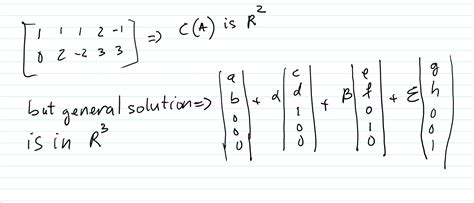 [1 1 1 2 -1] => C(A) is R^2
[0 2 -2 3 3]
but general solution => |a b 0 0 0| + α |c d 1 0 0| + β |e f 0 1 0| + ξ |g h 0 0 1|
is in R^3